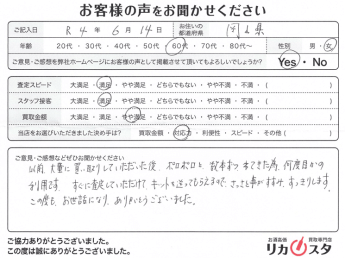 お客様の声をお聞かせください
ご記入日 R 4 年 6 月 14 日 お住いの都道府県 岡山県
年齢 20代・30代・40代・50代・60代・70代・80代〜 性別 男・女
ご意見・ご感想を弊社ホームページにお客様の声として掲載させて頂いてもよろしいでしょうか? Yes・No
査定スピード 大満足・満足・やや満足・どちらでもない・やや不満・不満・( )
スタッフ接客 大満足・満足・やや満足・どちらでもない・やや不満・不満・( )
買取金額 大満足・満足・やや満足・どちらでもない・やや不満・不満・( )
当店をお選びいただきました決め手は? 買取金額・対応力・利便性・スピード・その他( )
ご意見・ご感想などぜひお聞かせください
以前、大量に買い取りしていただいた後、ポロポロと、数本ずつ出てきた為、何度目かの
利用です。すぐに査定していただけて、キットを送ってもらえるので、さっさと事がすみ、すっきりします。
この度も、お世話になり、ありがとうございました。
ご協力ありがとうございました。
この度は誠にありがとうございました。
お酒高価 買取専門店
リカスタ